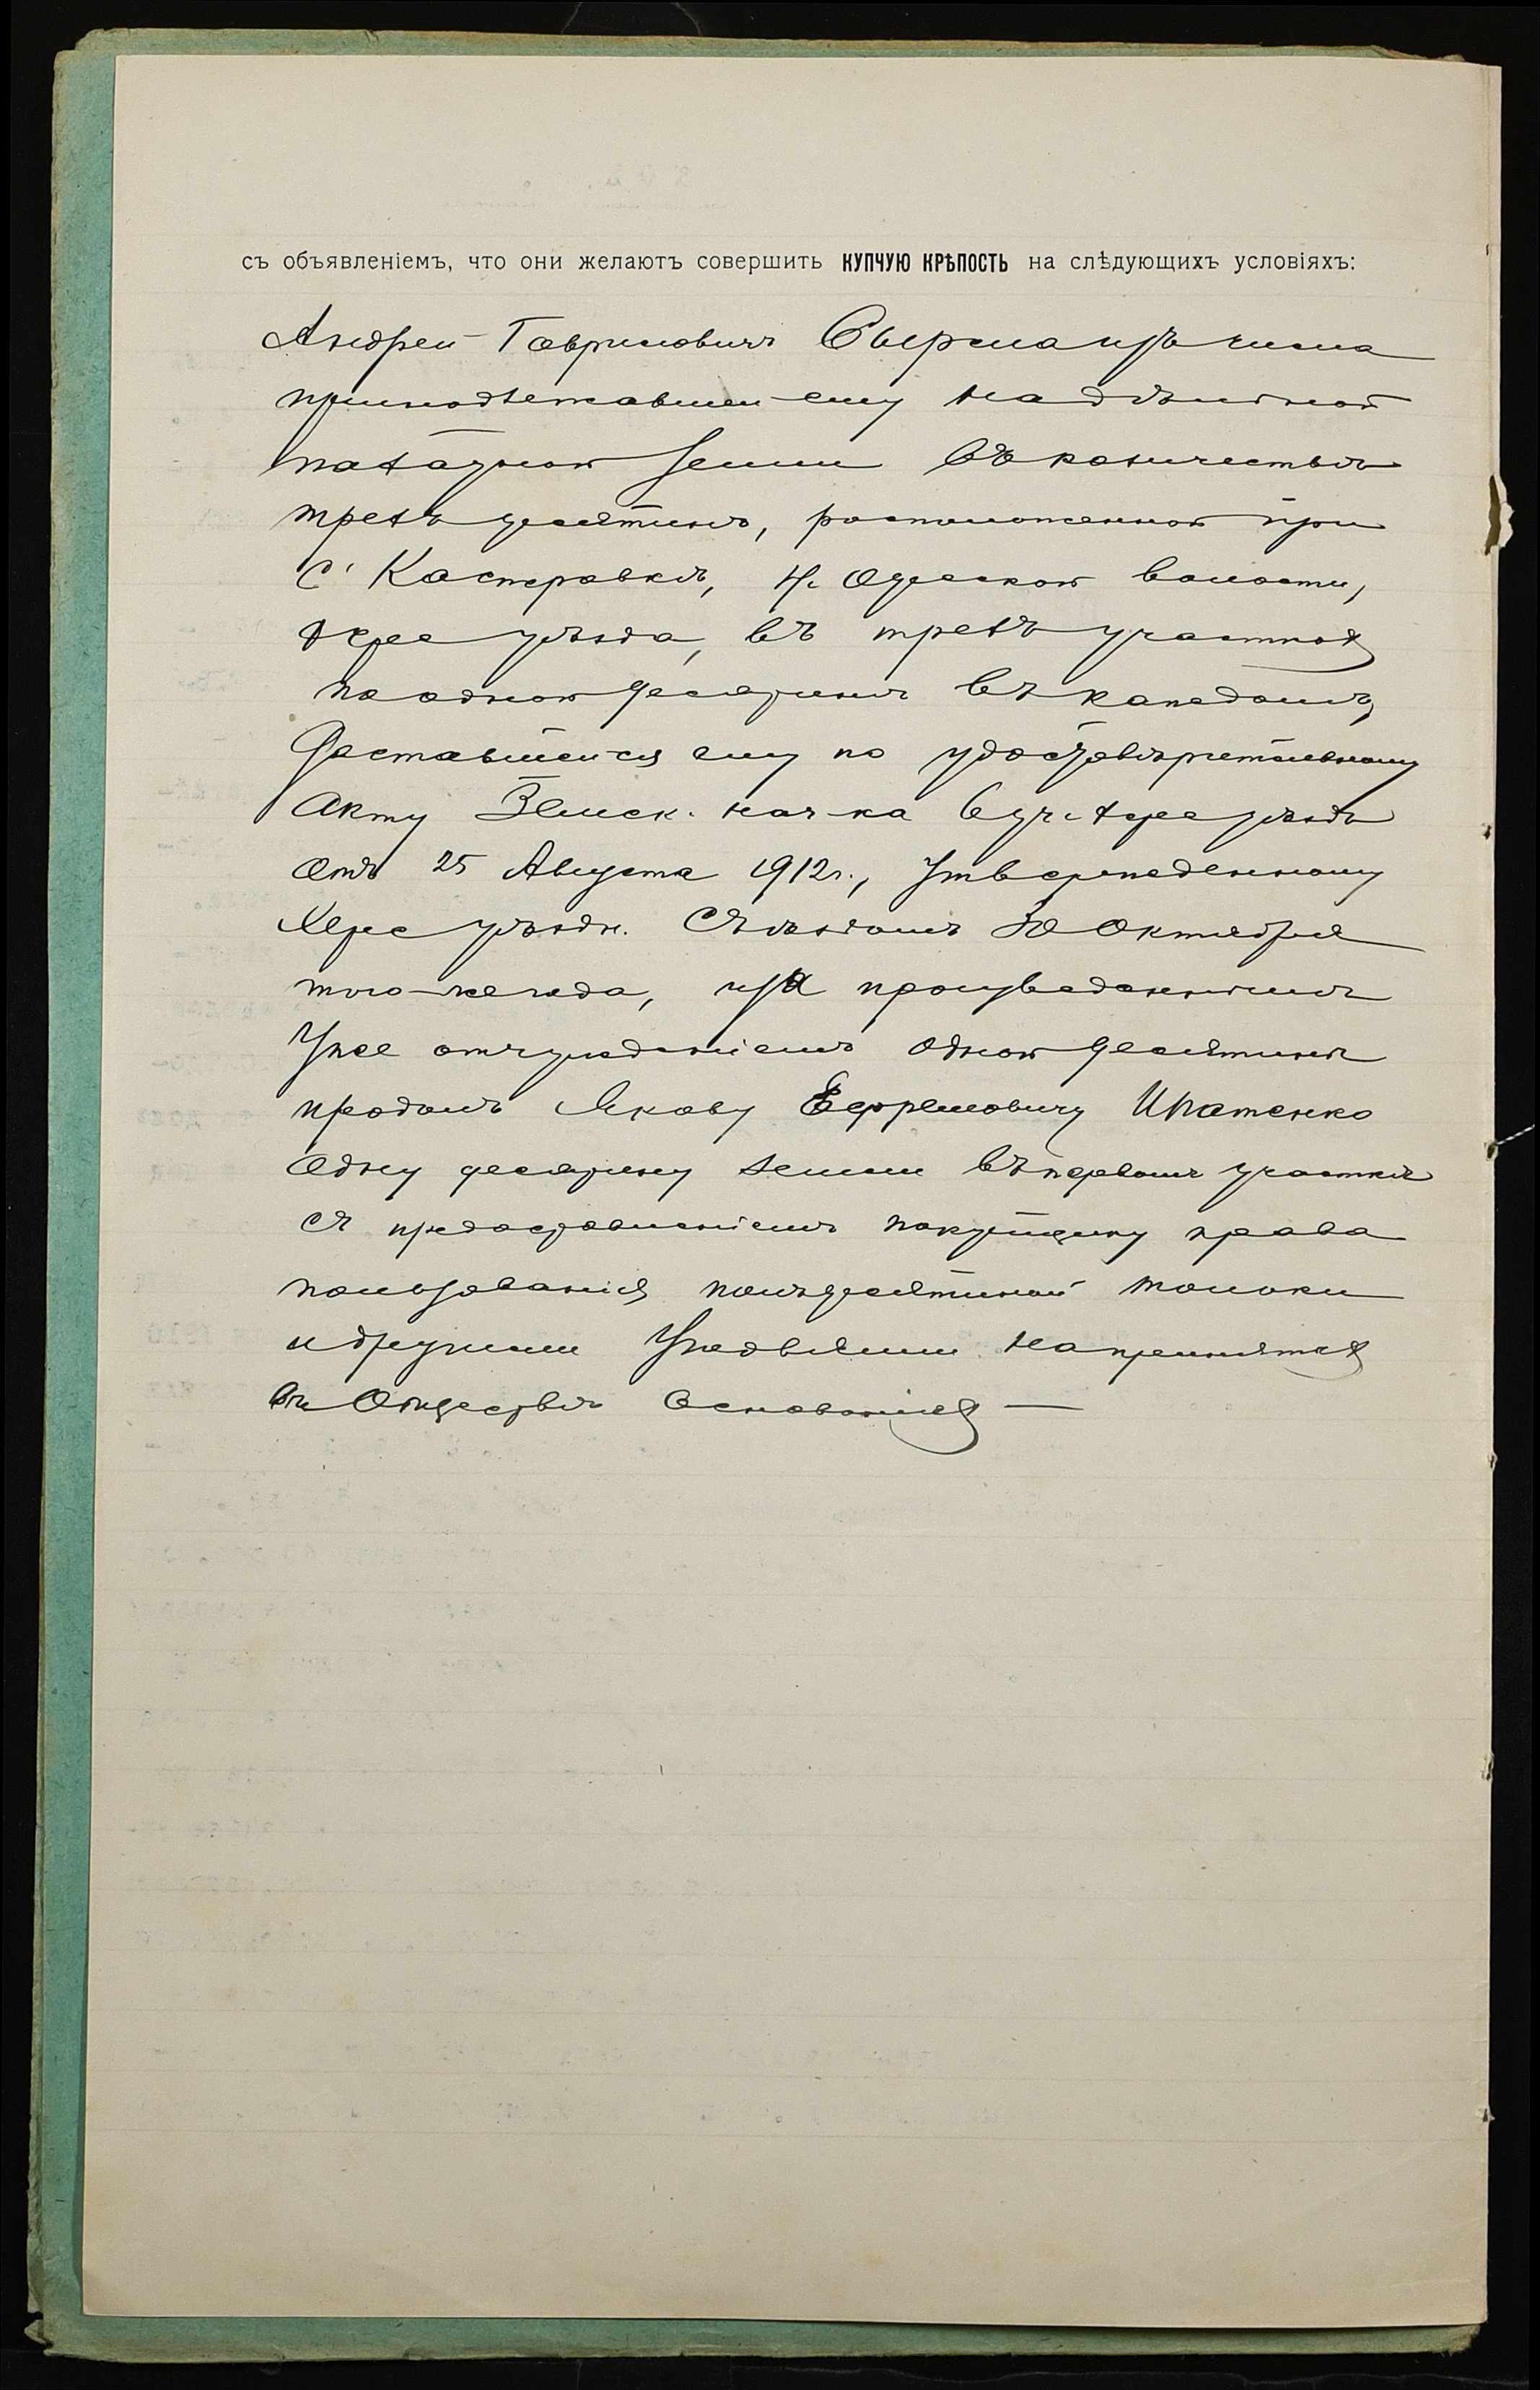 съ объявленіемъ, что они желаютъ совершить КУПЧУЮ КРѢПОСТЬ на слѣдующихъ условіяхъ:
Андрей Гавриловичъ Сырма изъ числа
принадлежавшей ему надѣльной
пахатной земли въ количествѣ
трехъ десятинъ, расположенной при
с. Касперовкѣ, Н. Одесской волости,
Херс уѣзда, въ трехъ участках
по одной десятинѣ въ каждомъ,
доставшейся ему по удостовѣрительному
акту Земск. нач-ка 6 уч. Херс уѣзда
отъ 25 Августа 1912 г., утвержденному
Херс уѣздн. Съѣздомъ 30 Октября
того-же года, за произведеннымъ
уже отчужденіемъ одной десятины
продалъ Якову Ефремовичу Ипатенко
одну десятину земли въ первомъ участкѣ
съ предоставленіемъ покупщику права
пользованія полъдесятиной толоки
и другими угодьями на принятых
въ Обществѣ основаніях